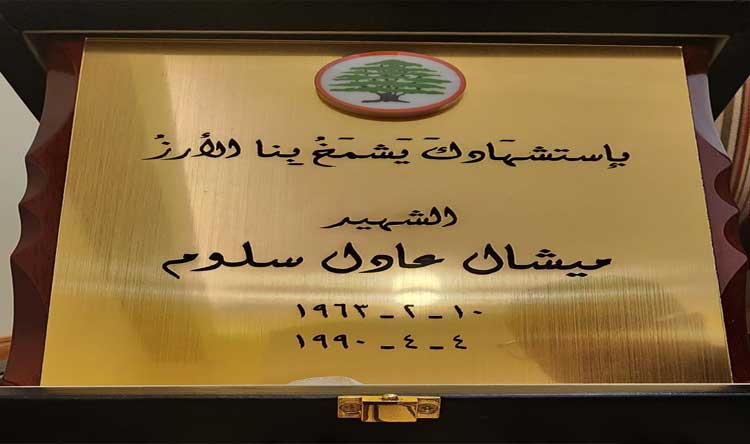 بإستشهَادكَ يَشمَخُ بِنا الأرزُ
الشهيد
ميشال عادل سلوم
١٠ - ٢ - ١٩٦٣
٤ - ٤ - ١٩٩٠